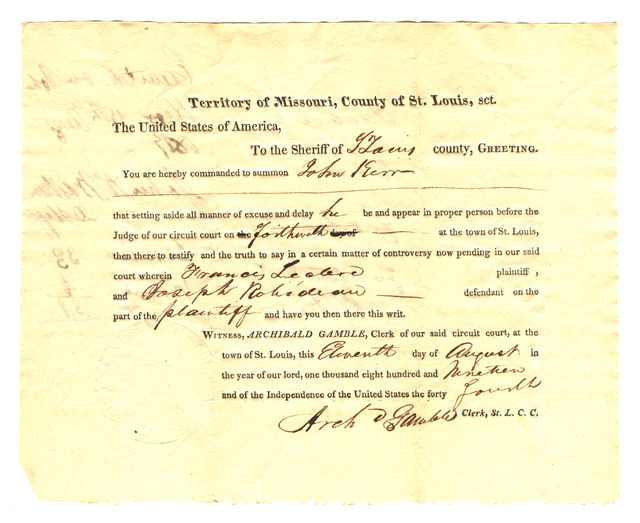 Territory of Missouri, County of St. Louis, sct.
The United States of America,
To the Sheriff of St Louis county, GREETING.
You are hereby commanded to summon John Kerr
that setting aside all manner of excuse and delay he be and appear in proper person before the
Judge of our circuit court on the forthwith day of — at the town of St. Louis,
then there to testify and the truth to say in a certain matter of controversy now pending in our said
court wherein Francis Leclerc plaintiff ,
and Joseph Robideau — defendant on the
part of the plaintiff and have you then there this writ.
WITNESS, ARCHIBALD GAMBLE, Clerk of our said circuit court, at the
town of St. Louis, this Eleventh day of August in
the year of our lord, one thousand eight hundred and Nineteen
and of the Independence of the United States the forty fourth
Archd Gamble Clerk, St. L. C. C.